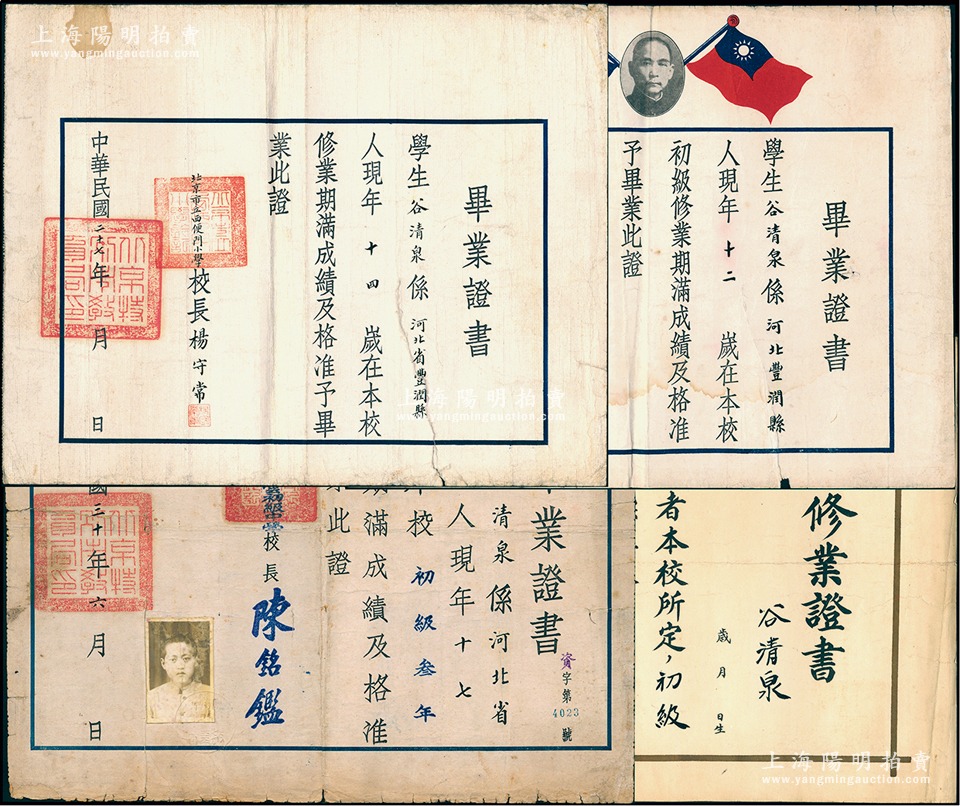 上海陽明拍賣
www.yangmingauction.com
畢業證書
學生谷清泉係河北省豐潤縣
人現年十四歲在本校
修業期滿成績及格准予畢
業此證
北京市立西便門小學校長楊守常
中華民國二十七年 月 日
畢業證書
學生谷清泉係河北豐潤縣
人現年十二歲在本校
初級修業期滿成績及格准
予畢業此證
業證書
資字第4023號
清泉係河北省
人現年十七
校初級叁年
期滿成績及格准
此證
校長陳銘鑑
國三十年六月 日
修業證書
谷清泉
歲 月 日生
者本校所定,初級
上海陽明拍賣
www.yangmingauction.com